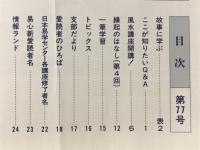 目次
第77号
故事に学ぶ 表2
ここが知りたいQ&A 1
風水講座開講! 6
縁起のはなし(第4回) 12
一筆学習 15
トピックス 16
支部だより 17
愛読者のひろば 18
日本易学センター各講座修了者名 22
易心新愛読者名 23
情報ランド 24